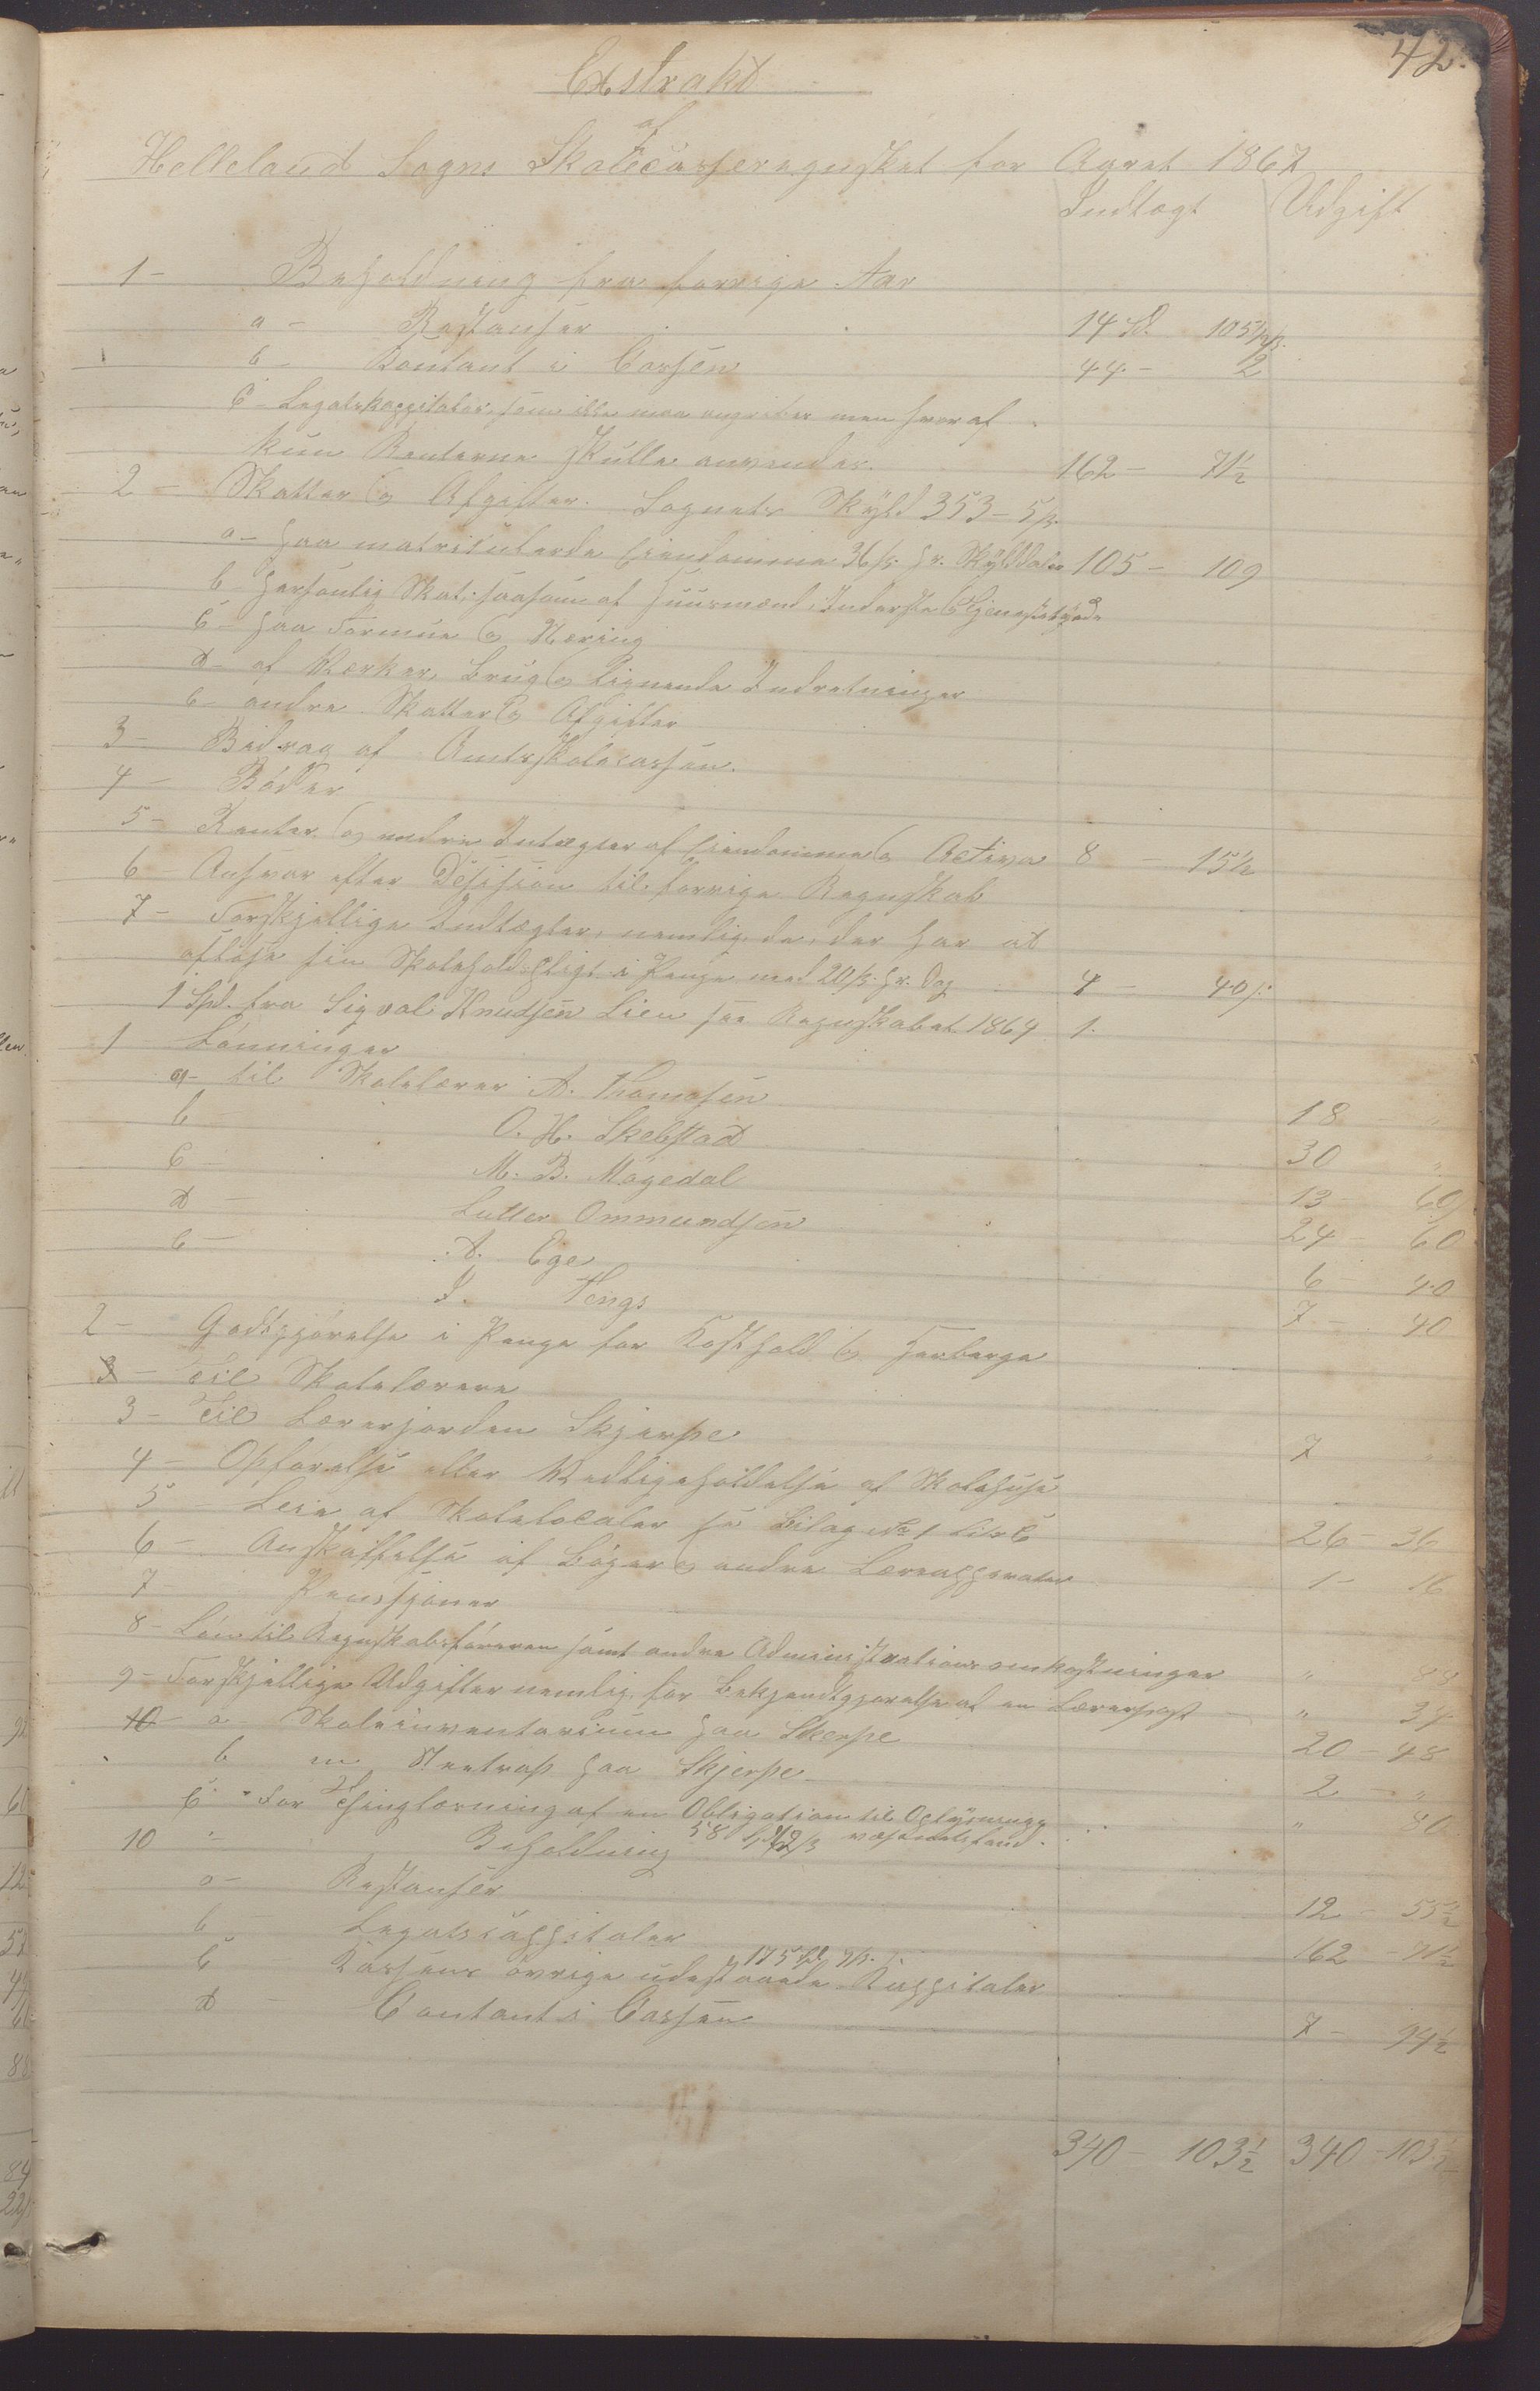 42.
Exstrakt
af
Helleland Sogns Skolecasseregnskab for Aaret 1867
Indtægt Udgift
1 - Beholdning fra forrige Aar
a - Restanser 14 Sp. 105 1/2 s.
b - Contant i Cassen 44 - 2
c - Legatskappitaler, som ikke maa angribes men hvoraf
kun Renterne skulle anvendes. 162 - 71 1/2
2 - Skatter og Afgifter. Sognets Skyld 353 - 5 s.
a - paa matriculerede Eiendomme 36 s. pr. Skylddaler 105 - 109
b personlig Skat, saasom af Huusmænd, Inderster og Tjenestetyende
c - paa Formue og Næring
d - af Værker, Brug og lignende Indretninger
e - andre Skatter og Afgifter
3 - Bidrag af Amtsskolecassen.
4 - Bøder
5 - Renter og andre Intægter af Eiendomme og Activa 8 - 15 1/2
6 - Ansvar efter Desision til forrige Regnskab
7 - Forskjellige Indtægter, nemlig de, der har at
afløse sin Skoleholdspligt i Penge med 20 s. pr. Dag 4 - 40 s.
1 Spd. fra Sigval Knudsen Lien paa Regnskabet 1864 1.
1 Lønninger
a - til Skolelærer A. Thomasen 18 "
b - O. H. Skebstad 30 "
c - M. B. Møgedal 13 60
d - Lutter Ommundsen 24 - 60
e - A. Ege 6 - 40
I. Tengs 7 - 40
2 - Godtgjørelse i Penge for Kosthold og Herberge
3 - til Skolelærere
3 - Til Lærerjorden Skjerpe 7 "
4 - Opførelse eller Vedligeholdelse af Skolehuse
5 - Leie af Skolelocaler se Bilag No 1 Litr C 26 - 36
6 - Anskaffelse af Bøger og andre Læreapperater 1 - 16
7 - Penssjoner
8 - Løn til Regnskabsføreren samt andre Administrationsomkostninger " 88
9 - Forskjellige Udgifter nemlig for Bekjendtgjørelse af en Lærerpost - " 34
10 - a Skoleinventarium paa Skerpe 20 - 48
b en Steetrap paa Skjerpe - 2 - "
c - For Thinglæsning af en Obligation til Oplysningsvæsenets fond. " 80
10 - Beholdning 58 Sp 72 s
a - Restanser 12 - 55 1/2
b - Legatscappitaler 162 - 71 1/2
c Kassens øvrige udestaaende Kappitaler 175 Spd. 7 s.
d Contant i Cassen 7 - 94 1/2
340 - 103 1/2 340 - 103 1/2